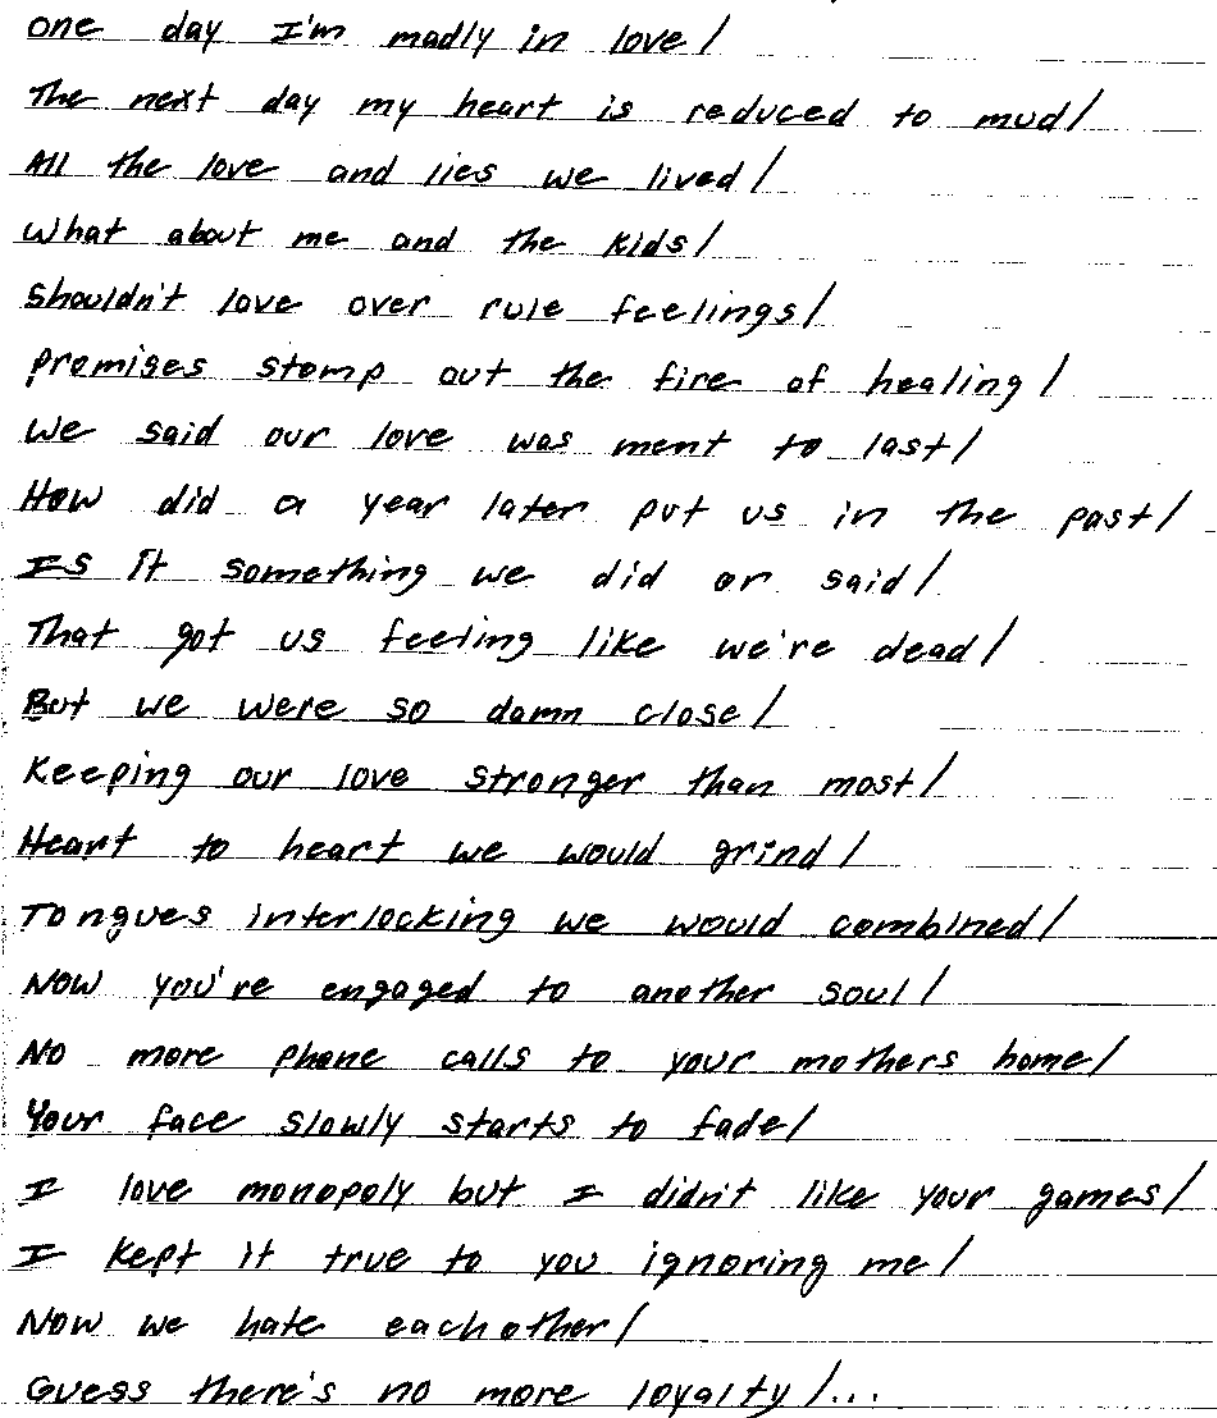 one day I'm madly in love/
The next day my heart is reduced to mud/
All the love and lies we lived/
What about me and the kids/
Shouldn't love over rule feelings/
promises stomp out the fire of healing/
We said our love was ment to last/
How did a year later put us in the past/
Is it something we did or said/
That got us feeling like we're dead/
But we were so damn close/
Keeping our love stronger than most/
Heart to heart we would grind/
Tongues interlocking we would combined/
Now you're engaged to another soul/
No more phone calls to your mothers home/
Your face slowly starts to fade/
I love monopoly but I didn't like your games/
I kept it true to you ignoring me/
Now we hate eachother/
Guess there's no more loyalty/...